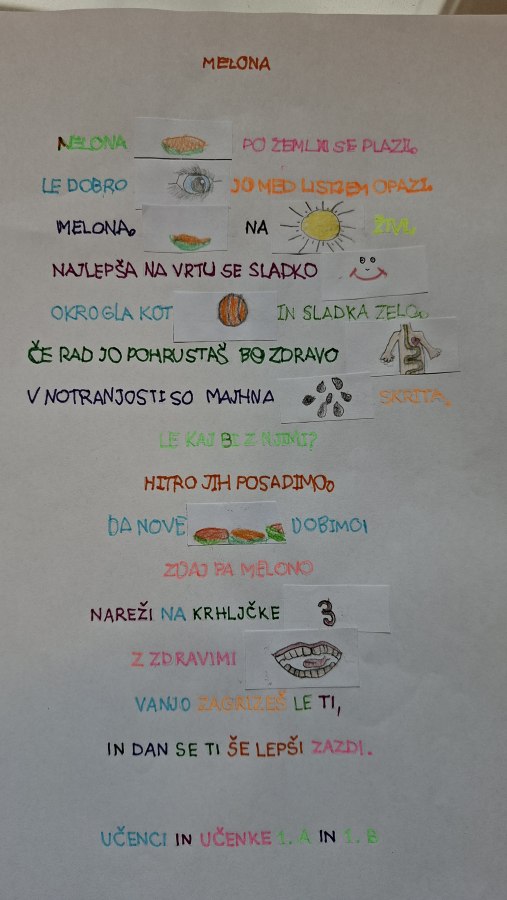 MELONA
MELONA PO ZEMLJI SE PLAZI.
LE DOBRO JO MED LISTJEM OPAZI.
MELONA. NA ŽIVI,
NAJLEPŠA NA VRTU SE SLADKO
OKROGLA KOT IN SLADKA ZELO.
ČE RAD JO POHRUSTAŠ BO ZDRAVO
V NOTRANJOSTI SO MAJHNA SKRITA,
LE KAJ BI Z NJIMI?
HITRO JIH POSADIMO.
DA NOVE DOBIMO!
ZDAJ PA MELONO
NAREŽI NA KRHLJČKE 3
Z ZDRAVIMI
VANJO ZAGRIZEŠ LE TI,
IN DAN SE TI ŠE LEPŠI ZAZDI.
UČENCI IN UČENKE 1. A IN 1. B